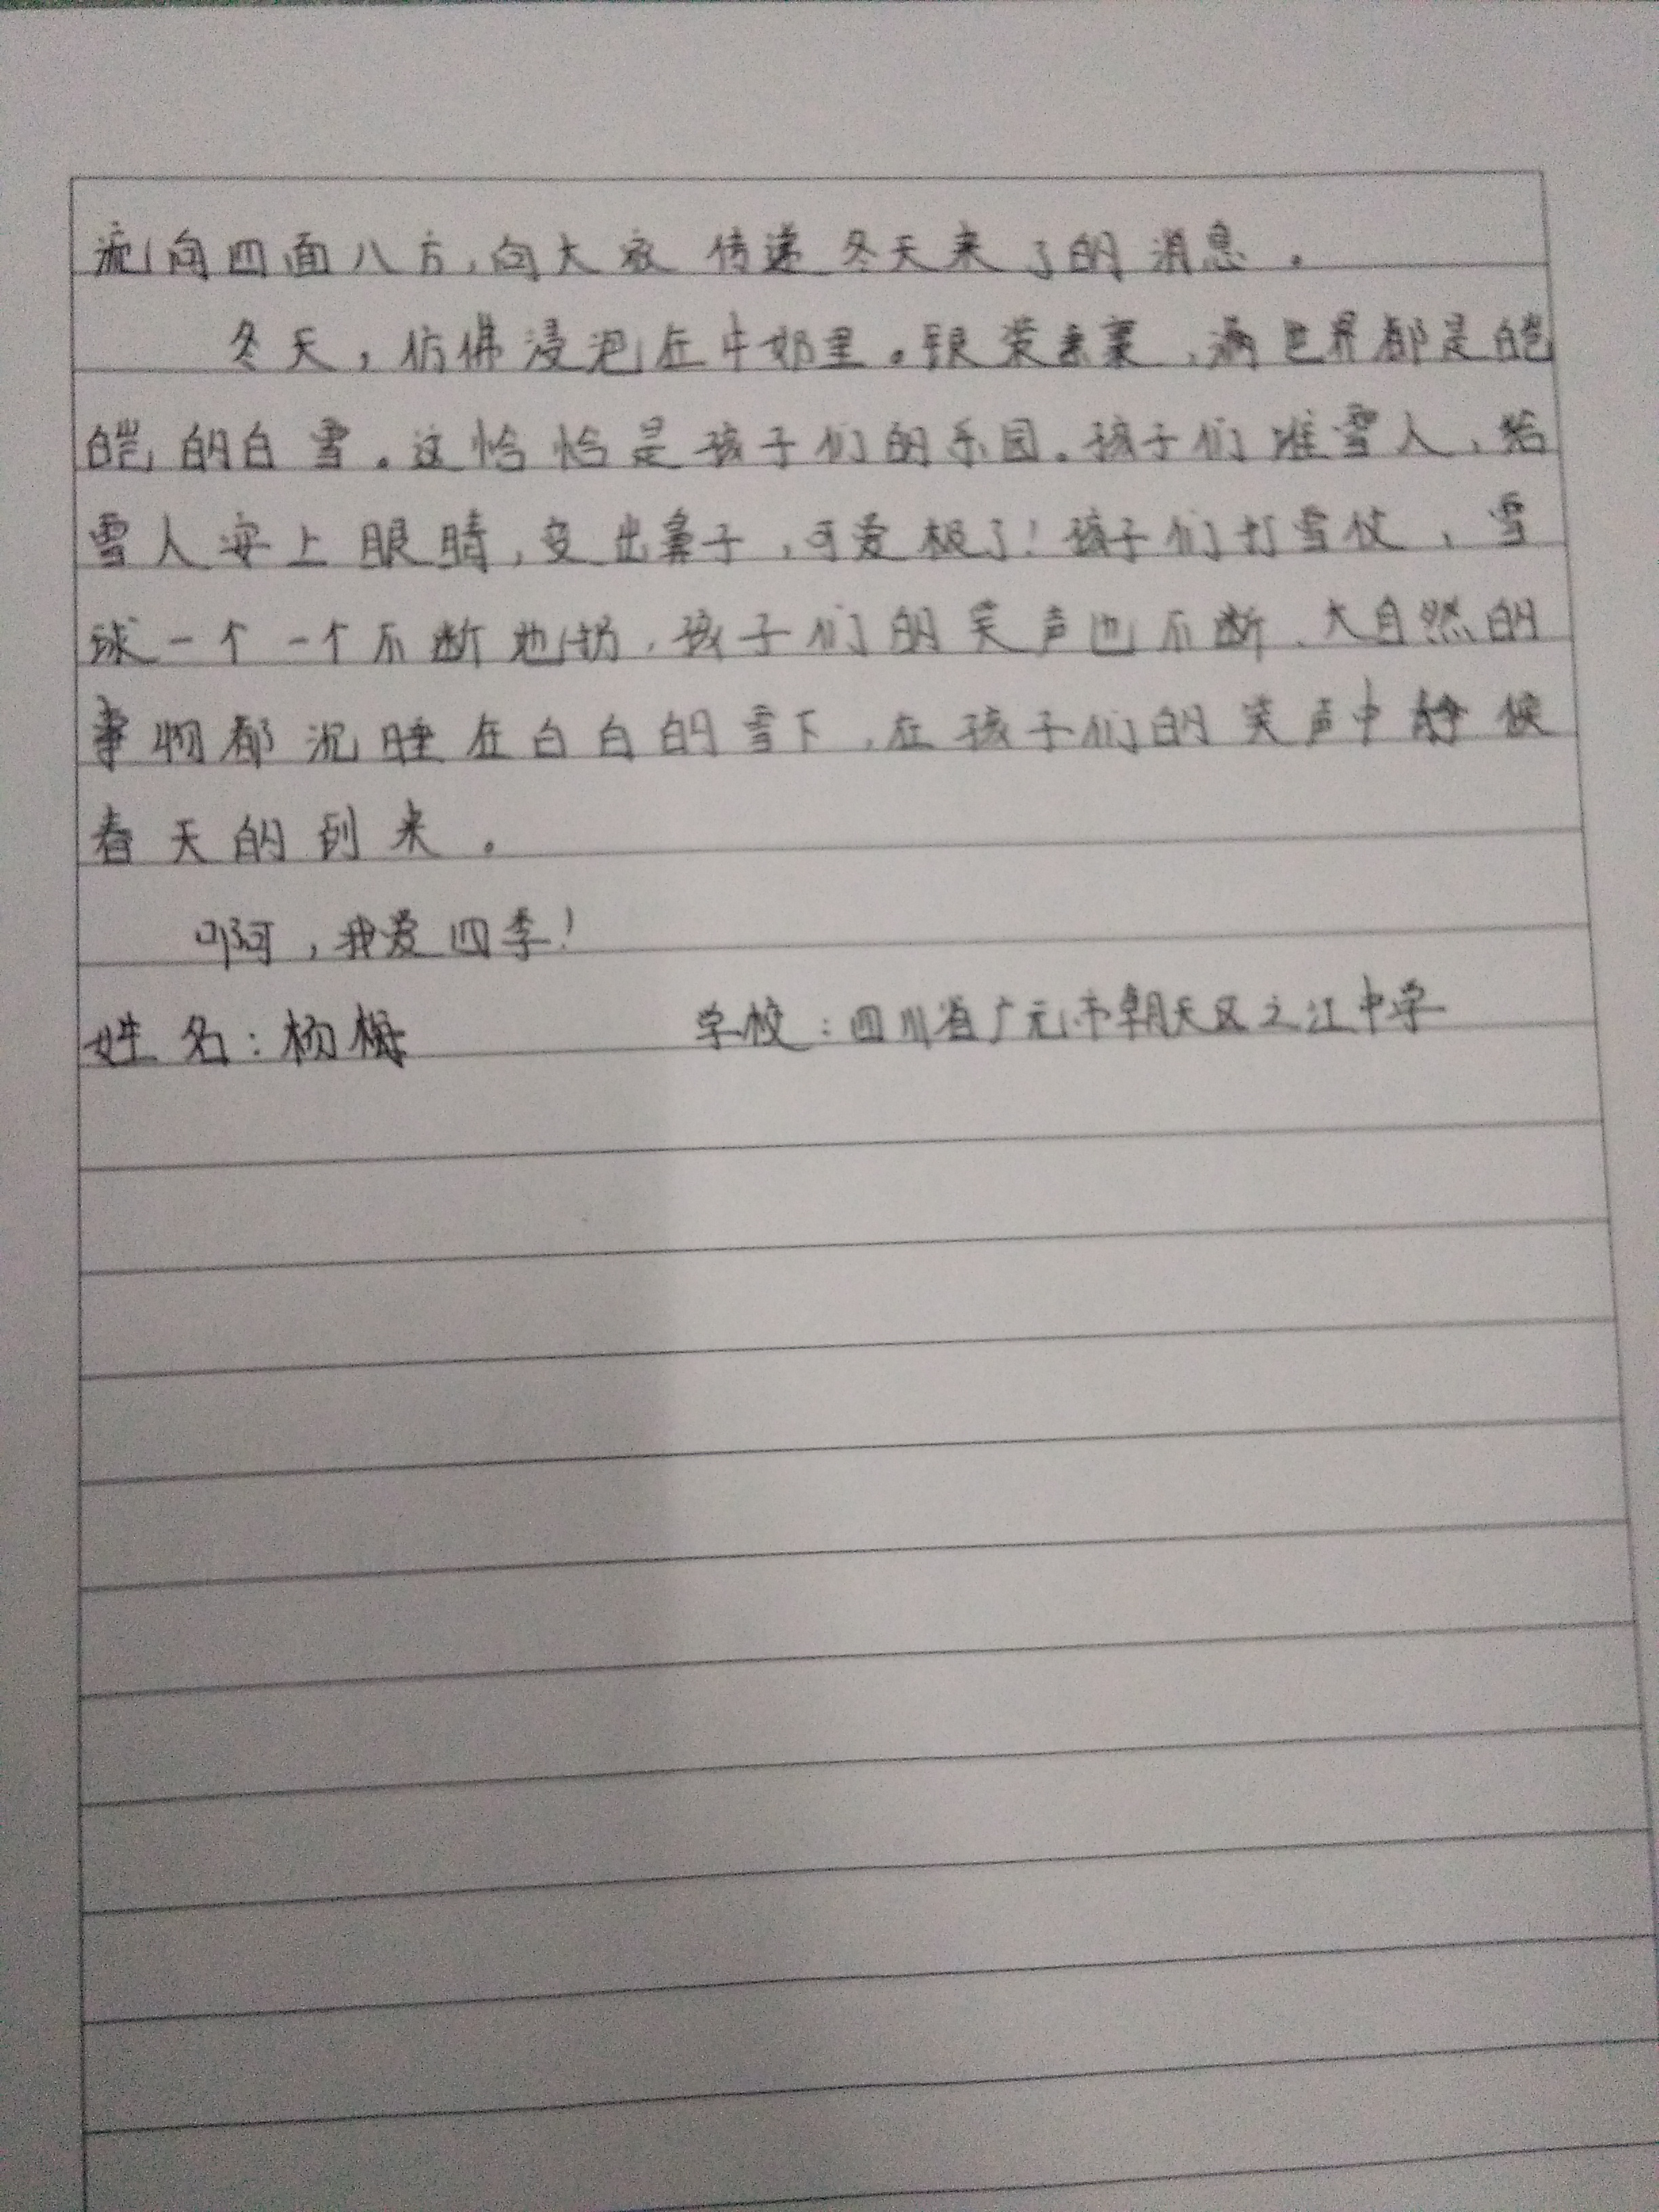 流向四面八方,向大家传递冬天来了的消息。
冬天,仿佛浸泡在牛奶里。银装素裹,满世界都是皑
皑的白雪。这恰恰是孩子们的乐园。孩子们堆雪人,给
雪人安上眼睛,变出鼻子,可爱极了!孩子们打雪仗,雪
球一个一个不断地扔,孩子们的笑声也不断、大自然的
事物都沉睡在白白的雪下,在孩子们的笑声中静候
春天的到来。
啊,我爱四季!
姓名:杨梅 学校:四川省广元市朝天区之江中学